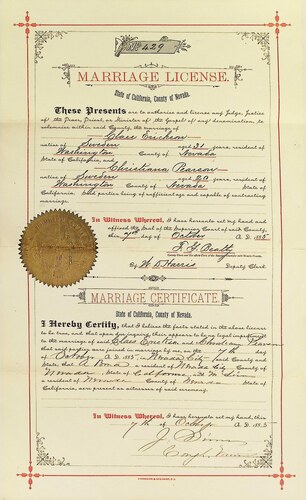 No 429
MARRIAGE LICENSE.
State of California, County of Nevada.
These Presents are to authorize and license any Judge, Justice
of the Peace, Priest, or Minister of the Gospel of any denomination, to
solemnize within said County, the marriage of
Claes Erickson
native of Sweden aged 31 years, resident of
Washington County of Nevada
State of California, and
Christiana Pearson
native of Sweden aged 20 years, resident of
Washington County of Nevada State of
California. Said parties being of sufficient age and capable of contracting
marriage.
In Witness Whereof, I have hereunto set my hand and
affixed the Seal of the Superior Court of said County,
this 7th day of October A. D. 1885
F. G. Beatty
By W. D. Harris Deputy Clerk.
MARRIAGE CERTIFICATE
State of California, County of Nevada.
I Hereby Certify, that I believe the facts stated in the above license
to be true, and that upon due inquiry, there appears to be no legal impediment
to the marriage of said Claes
that said parties were joined in marriage by me, on the 7th day
of October A. D. 1885 in Nevada City said County and
State; that a resident of Nevada City County of
Nevada State of California, and
a resident of Nevada County of Nevada State of
are present as witnesses of said ceremony.
In Witness Whereof, I have hereunto set my hand, this
7th of October A. D. 1885
J.